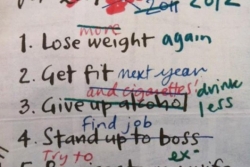 2011 2012
more
1. Lose weight again
2. Get fit next year
and cigarettes! drink
3. Give up alcohol less
find job
4. Stand up to boss
Try to ex-